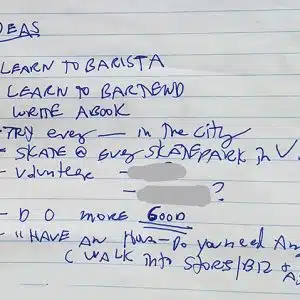 DEAS
LEARN TO BARISTA
LEARN TO BARTEND
WRITE A BOOK
-TRY every — in The City
- SKATE @ every SKATEPARK in V.
- Volunteer -
- ?
- DO MORE GOOD
- "HAVE AN Hour-Do you need An
( WALK into STORES/BIZ &